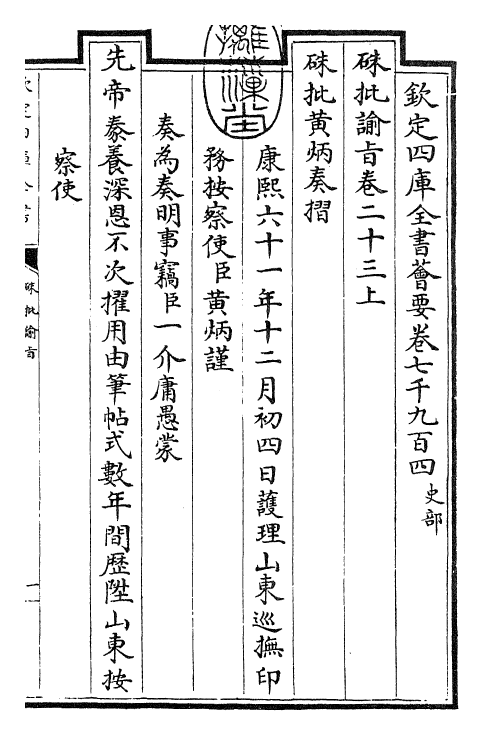 欽定四庫全書薈要卷七千九百四 史部
硃批諭旨卷二十三上
硃批黄炳奏摺
康熙六十一年十二月初四日護理山東巡撫印
務按察使臣黄炳謹
奏為奏明事竊臣一介庸愚蒙
先帝豢養深恩不次擢用由筆帖式數年間歴陞山東按
察使
硃批諭旨
一